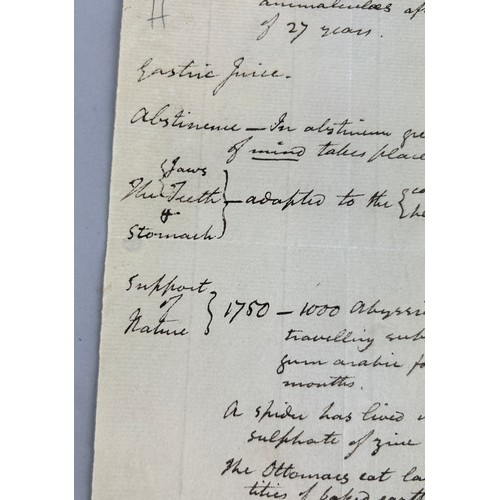 H
animalculæs af
of 27 years.
Gastric Juice.
Abstinence — In abstinen gre
of mind takes place
Jaws
The Teeth — adapted to the
&
Stomach
Support
of
Nature
1750 — 1000 Abyssi
travelling sub
gum arabic fo
months.
A spider has lived
sulphate of zinc
The Ottomacs eat la
tities of baked earth